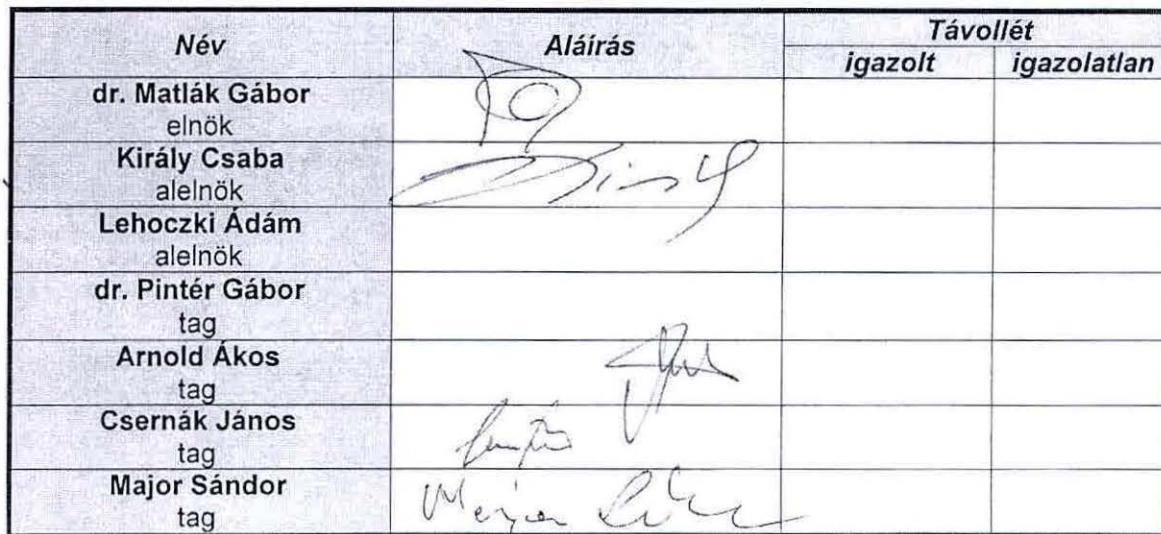 Név Aláírás Távollét
igazolt igazolatlan
dr. Matlák Gábor
elnök
Király Csaba
alelnök
Lehoczki Ádám
alelnök
dr. Pintér Gábor
tag
Arnold Ákos
tag
Csernák János
tag
Major Sándor
tag